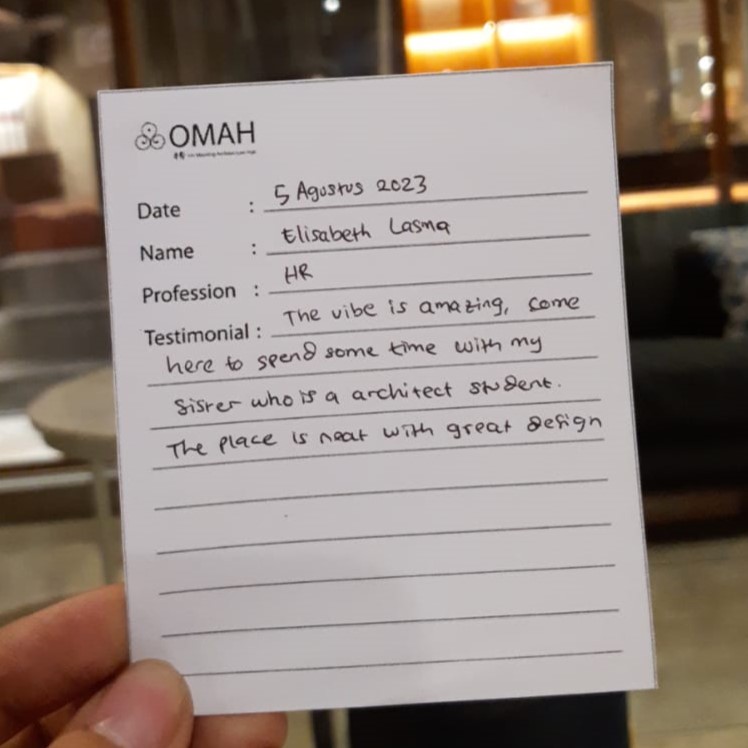 OMAH
Date : 5 Agustus 2023
Name : Elisabeth Lasma
Profession : HR
Testimonial : The vibe is amazing, come
here to spend some time with my
Sister who is a architect student.
The place is neat with great design